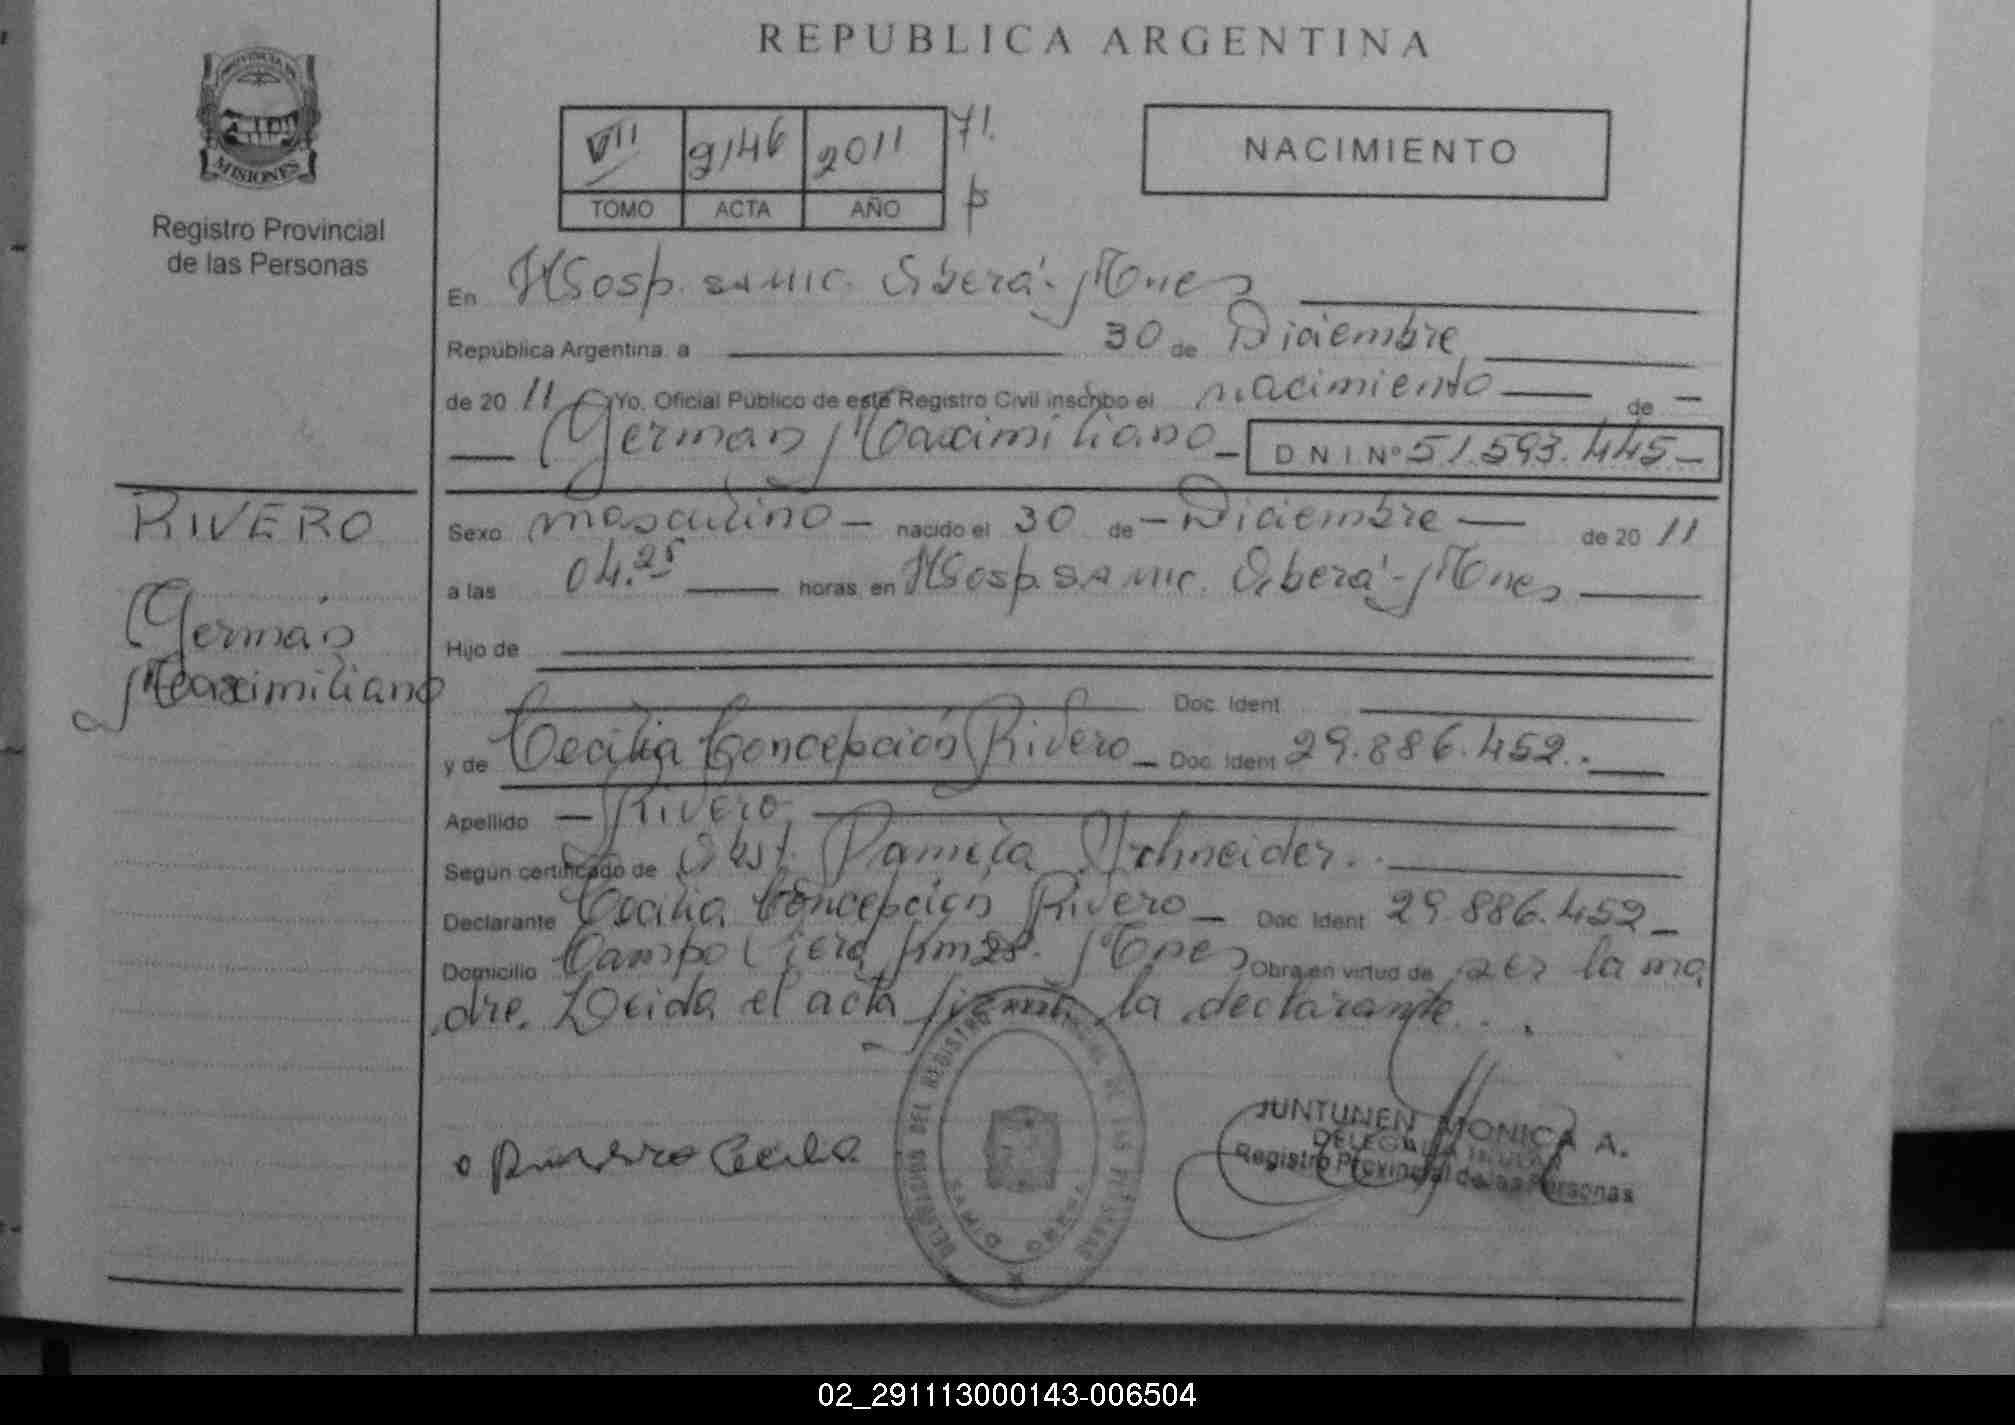 REPUBLICA ARGENTINA
PROVINCIA DE
MISIONES
Registro Provincial
de las Personas
VII 2146 2011 71.
TOMO ACTA AÑO
NACIMIENTO
En Hosp. SAMIC. Oberá - Mnes
República Argentina. a 30 de Diciembre
de 2011 Yo. Oficial Público de este Registro Civil inscribo el nacimiento de
German Maximiliano DNI Nº 51.593.445
RIVERO
Germán
Maximiliano
Sexo masculino nacido el 30 de Diciembre de 2011
a las 04.25 horas en Hosp. SAMIC. Oberá - Mnes
Hijo de
Doc. Ident
y de Cecilia Concepción Rivero Doc. Ident 29.886.452.
Apellido Rivero
Según certificado de Obst. Pamela Schneider.
Declarante Cecilia Concepción Rivero Doc. Ident 29.886.452
Domicilio Campo Viera Km 28. Mnes Obra en virtud de ser la ma
dre. Leida el acta firma la declarante.
Cecilia
DELEGACION DEL REGISTRO PROVINCIAL DE LAS PERSONAS
JUNTUNEN MONICA A.
DELEGADA TITULAR
Registro Provincial de las Personas
02_291113000143-006504